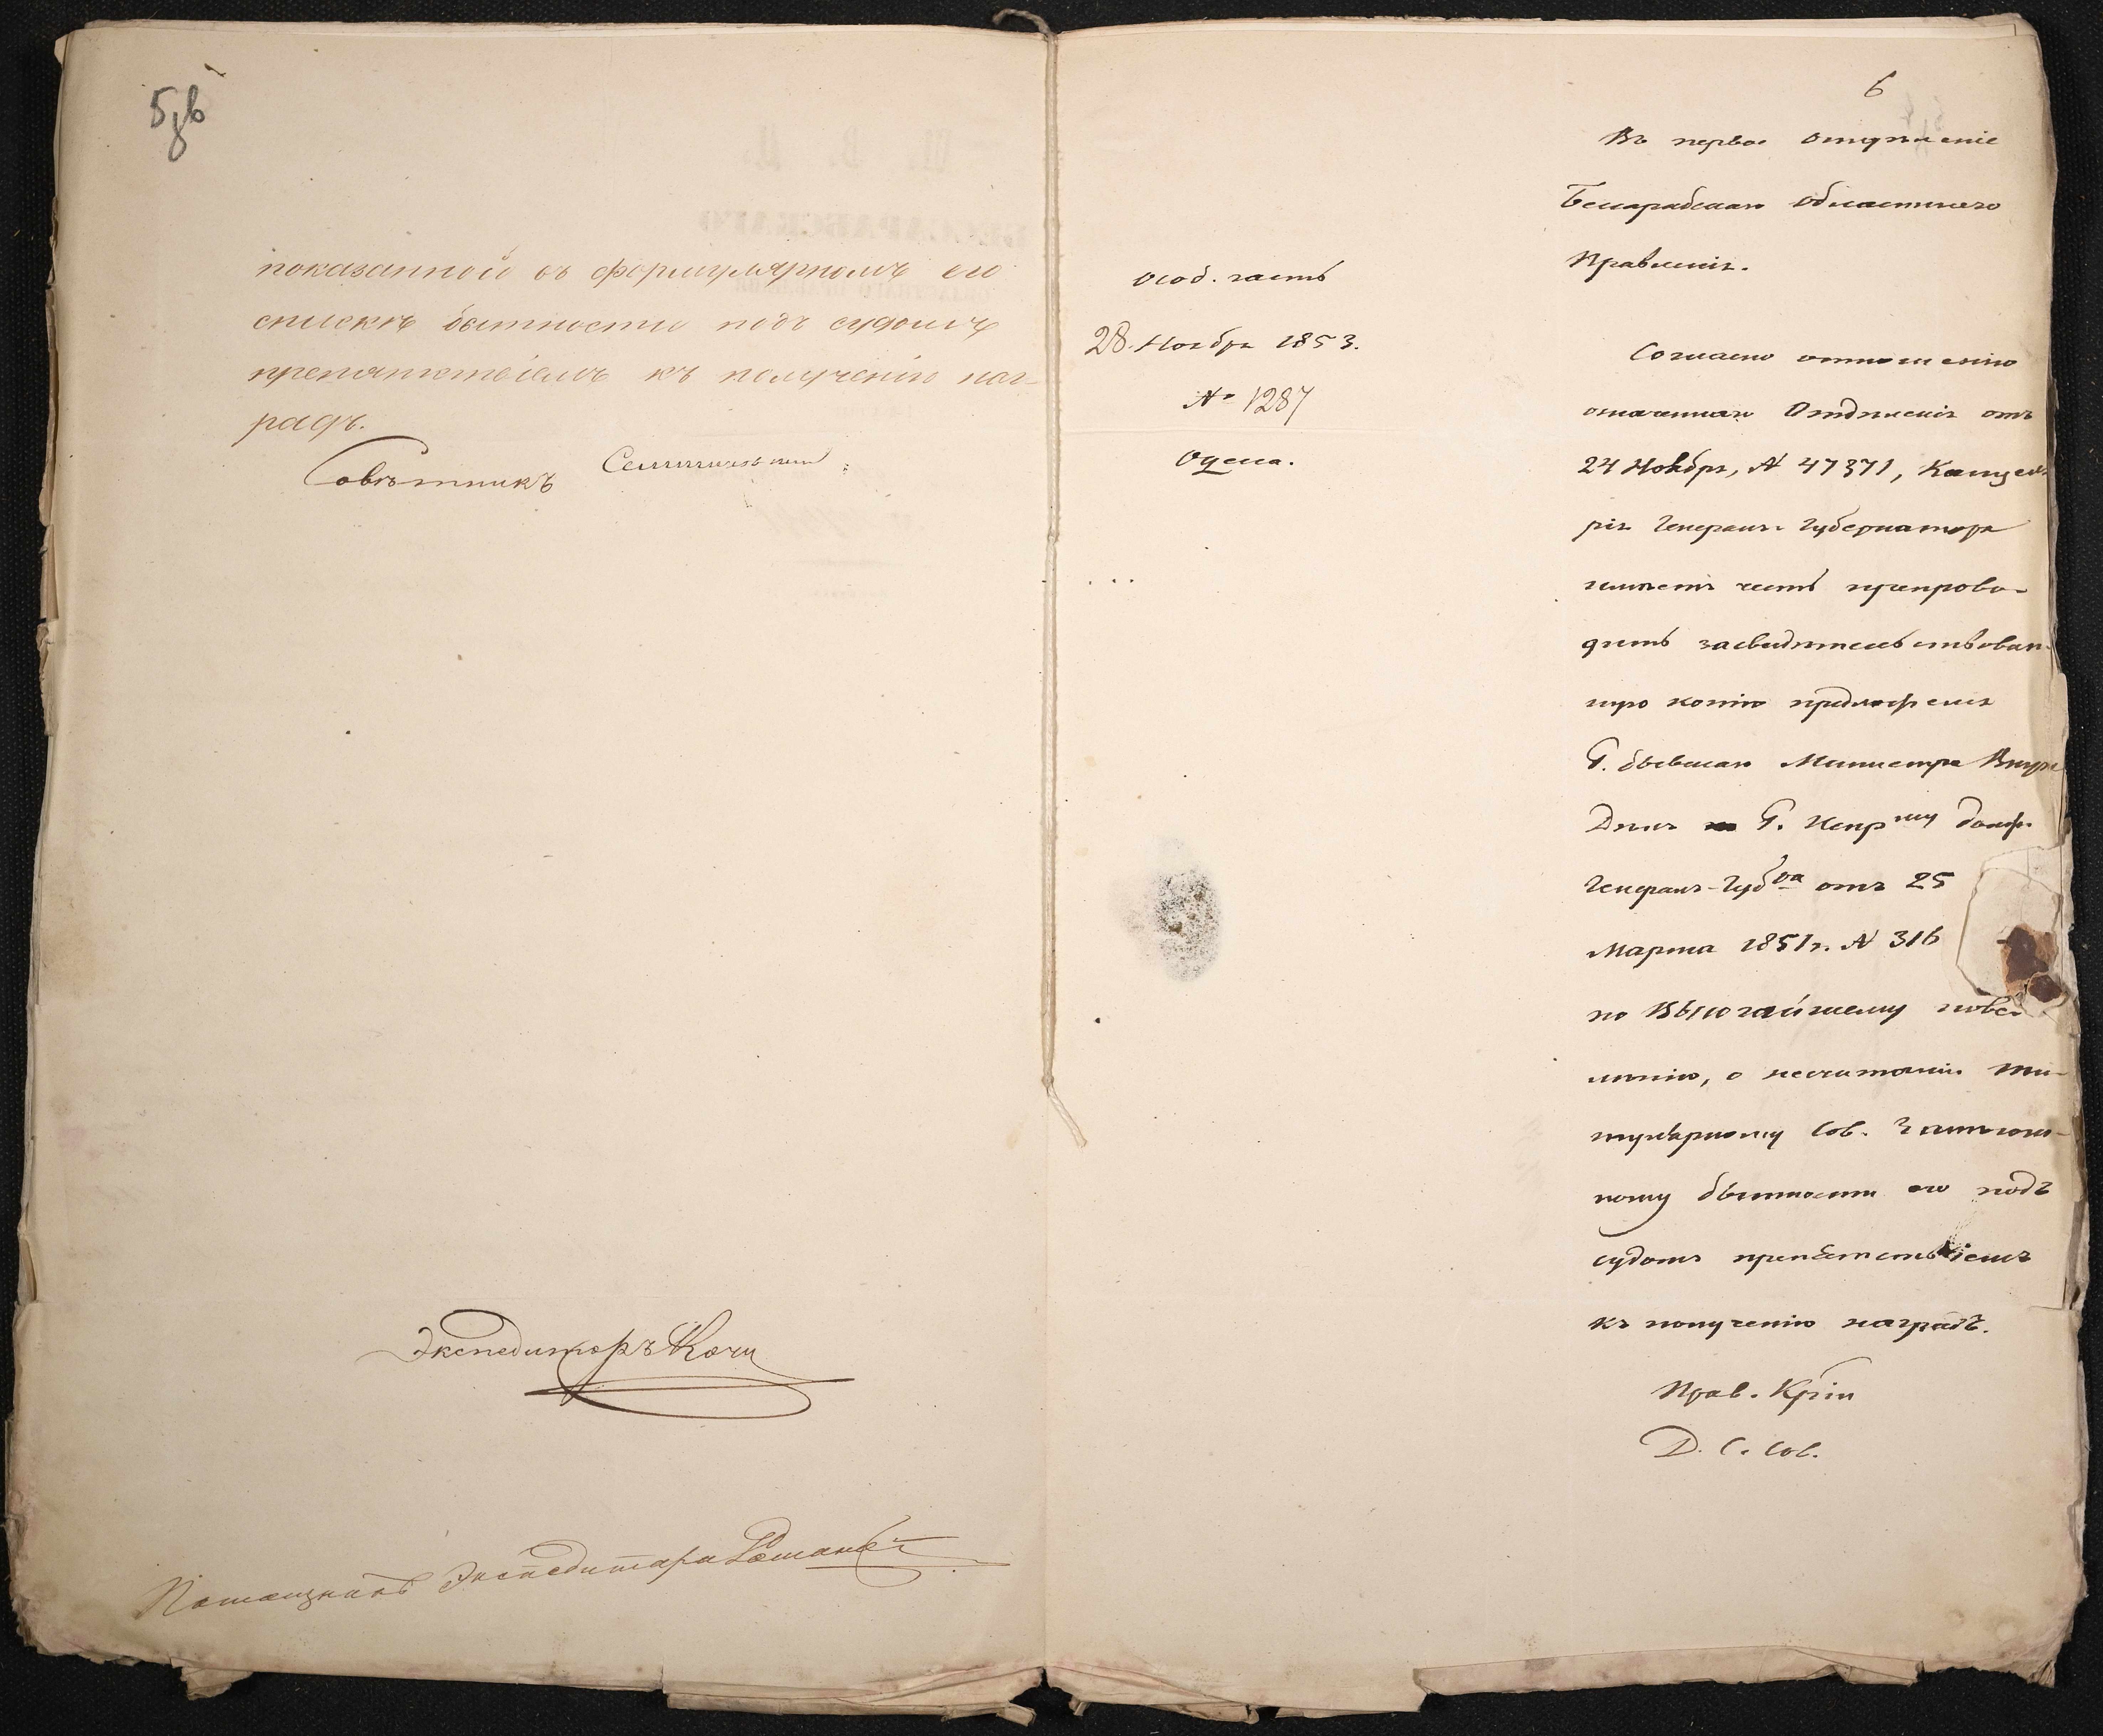 показанной въ формулярномъ его
спискѣ бытности подъ судомъ
препятствіемъ къ полученію наг-
радъ.
Совѣтникъ
Экспедиторъ Кочи
Помощникъ Экспедитора
6
Въ первое Отдѣленіе
Бессарабскаго Областнаго
Правленія.
Особ. часть
28 Ноября 1853.
№ 1287
Одесса.
Согласно отношенію
означеннаго Отдѣленія отъ
24 Ноября, № 47371, Канцеля
рія Генералъ-Губернатора
имѣетъ честь препрово-
дить засвидѣтельствован-
ную копію предложенія
Г. бывшаго Министра Внутр
Дѣлъ Г. Исп. долж.
Генералъ-Губ-ра отъ 25
Марта 1851 г. № 316
по Высочайшему пове-
лѣнію, о несчитаніи Ти-
тулярному Сов.
бытности его подъ
судомъ препятствіемъ
къ полученію наградъ.
Прав. К-ріи
Д. С. Сов.